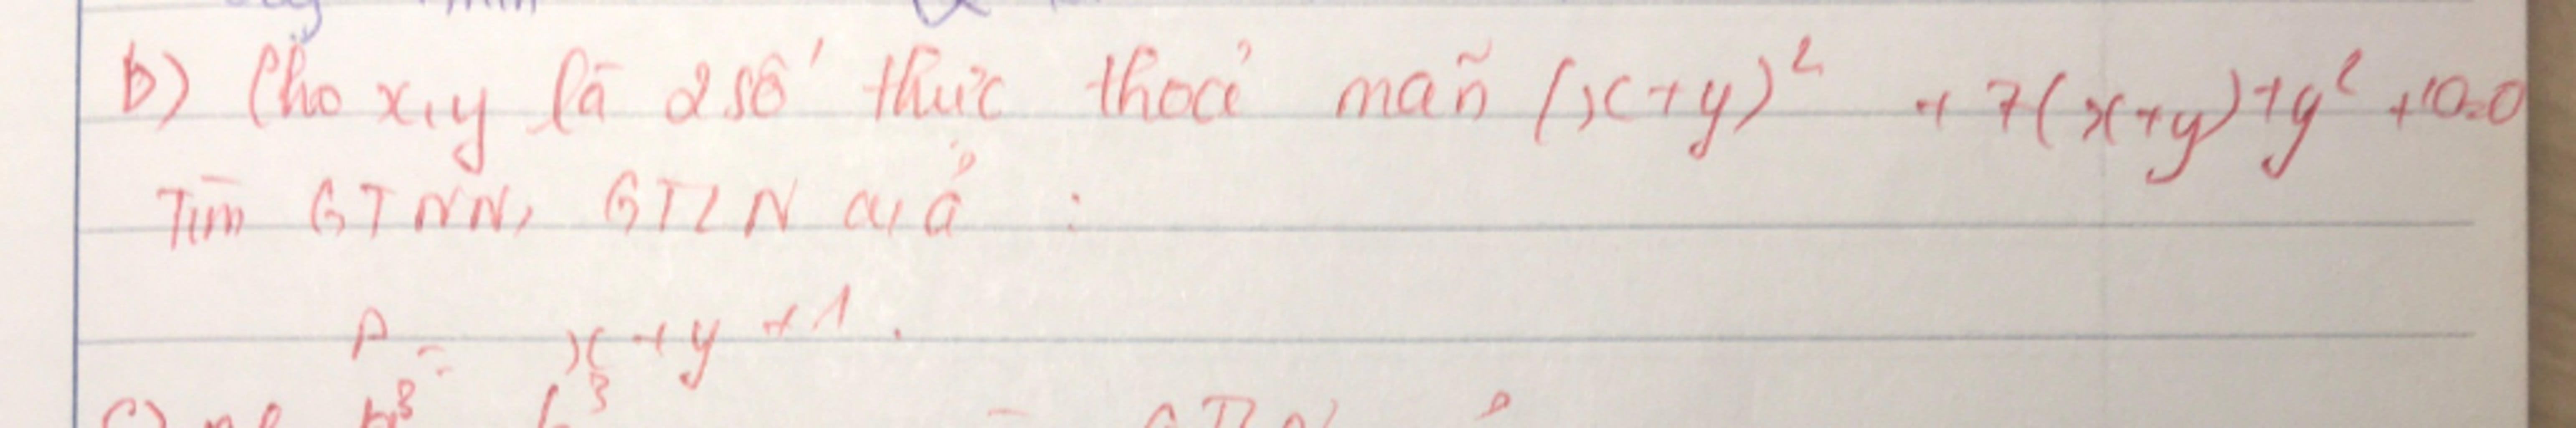 b) Cho x, y là 2 số thực thoả mãn (x+y)² + 7(x+y) + y² + 10 = 0
Tìm GTNN, GTLN củả :
P = x + y + 1.